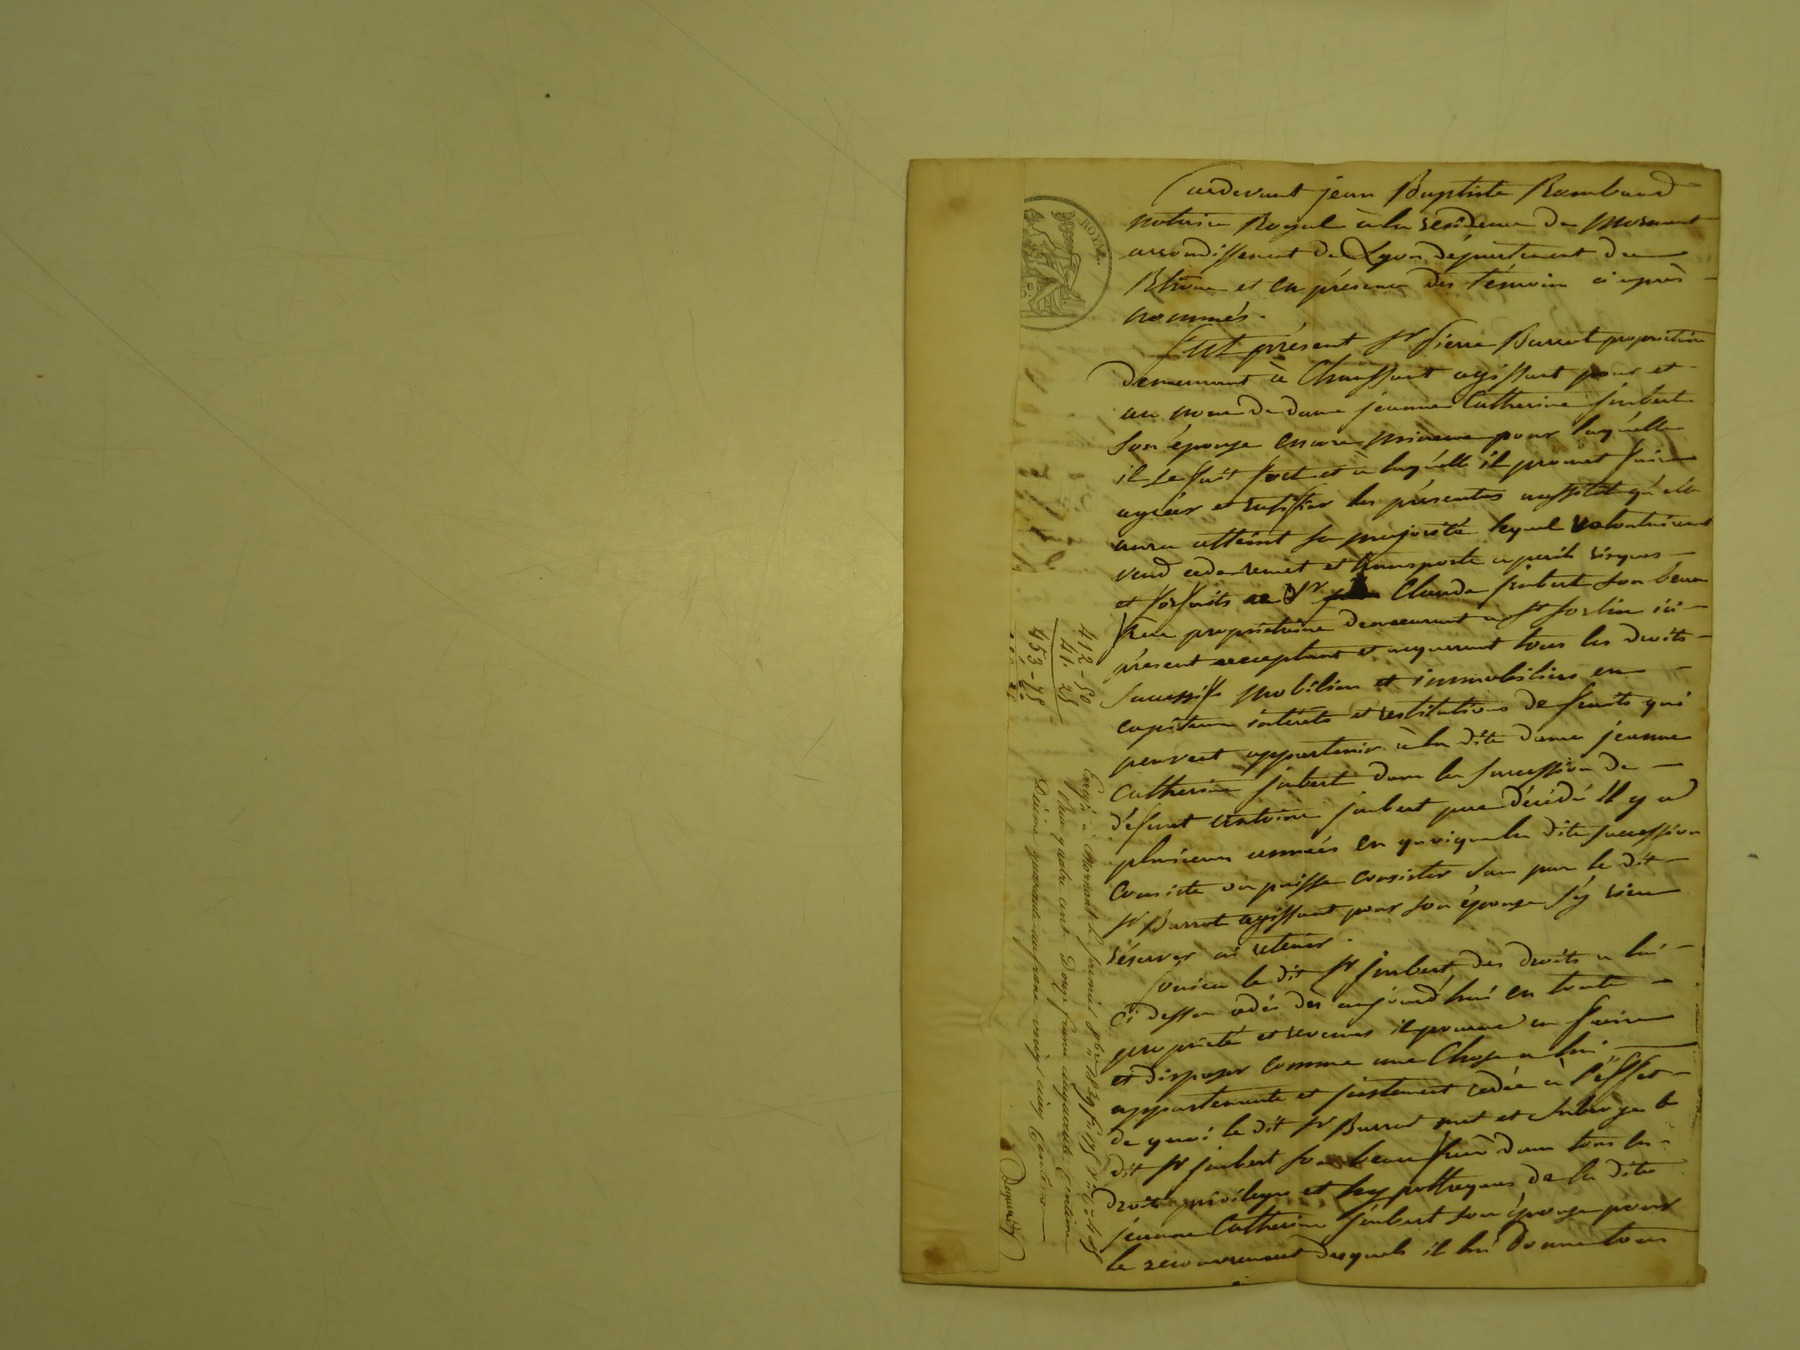 Pardevant jean Baptiste Rambaud
notaire Royal à la résidence de Mornant
arrondissement de Lyon département du
Rhône et en présence des témoins ci après
nommés.
Fut présent Sr Pierre Barrot propriétaire
demeurant à Chaussant agissant pour et
au nom de dame jeanne Catherine jimbert
son épouse encore mineure pour laquelle
il se fait fort et à laquelle il promet faire
agréer et ratifier les présentes aussitôt qu'elle
aura atteint sa majorité lequel volontairement
vend cède remet et transporte a perils risques
et forfaits au Sr Claude jimbert son beau
frère propriétaire demeurant a St Sorlin ici
présent acceptant et acquerant tous les droits
successifs mobiliers et immobiliers en
capitaux intérêts et restitutions de fruits qui
peuvent appartenir à la dite dame jeanne
Catherine jimbert dans la succession de
défunt Antoine jimbert père décédé il y a
plusieurs années en quoi que la dite succession
consiste ou puisse consister sans par le dit
Sr Barrot agissant pour son épouse s'y rien
réserver ni retenir.
jouira le dit Sr jimbert des droits a lui
ci dessus cédés dès aujourd'hui en toute
propriété et revenus il pourra en faire
et disposer comme une Chose a lui
appartenante et justement cédée à l'effet
de quoi le dit Sr Barrot met et subroge le
dit Sr jimbert son beau frère dans tous les
droits privilèges et hypothèques de la dite
jeanne Catherine jimbert son épouse pour
le recouvrement desquels il lui donne tous
ROYAL
412-50
41.25
453-75
Enregé à Mornant le premier 8bre 1829 fo 175
Reçu quatre cent Douze francs cinquante Centimes
Décime quarante un franc vingt cinq Centimes